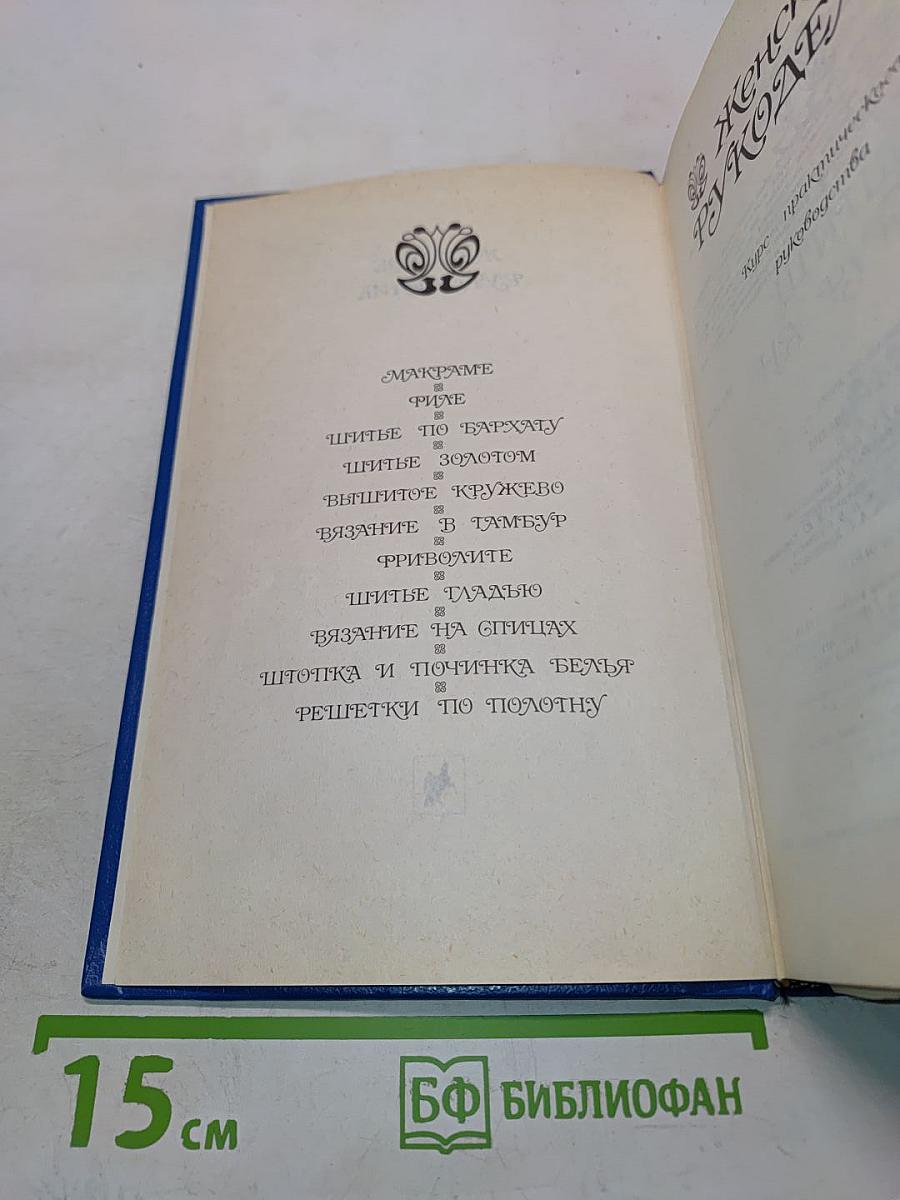 МАКРАМЕ
ФИЛЕ
ШИТЬЕ ПО БАРХАТУ
ШИТЬЕ ЗОЛОТОМ
ВЫШИТОЕ КРУЖЕВО
ВЯЗАНИЕ В ТАМБУР
ФРИВОЛИТЕ
ШИТЬЕ ГЛАДЬЮ
ВЯЗАНИЕ НА СПИЦАХ
ШТОПКА И ПОЧИНКА БЕЛЬЯ
РЕШЕТКИ ПО ПОЛОТНУ
ЖЕНСК
РУКОДЕ
Курс практического
руководства
15 см
БФ БИБЛИОФАН